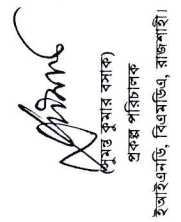 (সুমন্ত কুমার বসাক)
প্রকল্প পরিচালক
ইআইএনডি, বিএমডিএ, রাজশাহী।